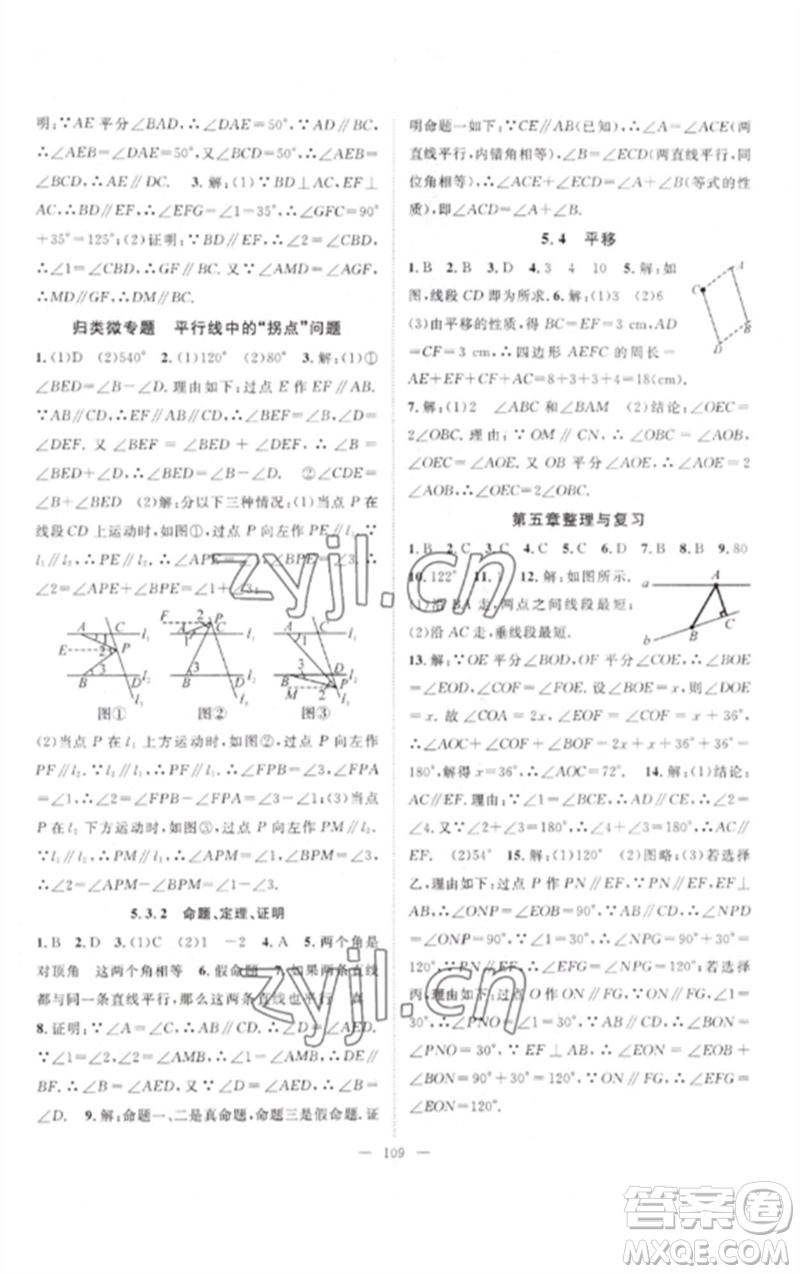 明:∵AE平分∠BAD,∴∠DAE=50°,∵AD∥BC,
∴∠AEB=∠DAE=50°,又∠BCD=50°,∴∠AEB=
∠BCD,∴AE∥DC. 3.解:(1)∵BD⊥AC,EF⊥
AC,∴BD∥EF,∴∠EFG=∠1=35°,∴∠GFC=90°
+35°=125°;(2)证明:∵BD∥EF,∴∠2=∠CBD,
∴∠1=∠CBD,∴GF∥BC. 又∵∠AMD=∠AGF,
∴MD∥GF,∴MD∥BC.
归类微专题 平行线中的“拐点”问题
1.(1)D (2)540° 2.(1)120° (2)80° 3.解:(1)①
∠BED=∠D. 理由如下:过点E作EF∥AB.
∵AB∥CD,∴EF∥CD,∴∠BEF=∠B,∠D=
∠DEF. 又∠BEF=∠BED+∠DEF,∴∠B=
∠BED+∠D. ②∠CDE=
∠B+∠BED (2)解:分以下三种情况:(1)当点P在
线段CD上运动时,如图①,过点P向左作PE∥l₁.
∵l₁∥l₂,∴PE∥l₁∥l₂,∴∠1=∠APE,∠3=∠BPE.
∠2=∠APE+∠BPE=∠1+∠3;
A C l₁ E P B D l₂ l₃
图① 图② 图③
(2)当点P在l₁上方运动时,如图②,过点P向左作
PF∥l₁,∴PF∥l₁∥l₂,∴∠FPB=∠3,∠FPA
=∠1,∴∠2=∠FPB-∠FPA=∠3-∠1;(3)当点
P在l₂下方运动时,如图③,过点P向左作PM∥l₂.
∵l₁∥l₂,∴PM∥l₁∥l₂,∴∠APM=∠1,∠BPM=∠3,
∴∠2=∠APM-∠BPM=∠1-∠3.
5.3.2 命题、定理、证明
1.B 2.D 3.(1)C (2)1 -2 4.A 5.两个角是
对顶角 这两个角相等 6.假命题 7.如果两条直线
都与同一条直线平行,那么这两条直线也平行 真
8.证明:∵∠A=∠C,∴AB∥CD,∴∠B=∠D.
∵∠1=∠2,∠1=∠AMB,∴∠2=∠AMB,
∴AE∥BF,∴∠B=∠AED,又∵∠D=∠AED,∴∠B=
∠D. 9.解:命题一、二是真命题,命题三是假命题. 证
明命题一如下:∵CE∥AB(已知),∴∠A=∠ACE(两
直线平行,内错角相等),∠B=∠ECD(两直线平行,同
位角相等),∴∠ACE+∠ECD=∠A+∠B(等式的性
质),即∠ACD=∠A+∠B.
5.4 平移
1.B 2.B 3.D 4.3 4 10 5.解:如
图,线段CD即为所求. 6.(1)2 (2)6
(3)由平移的性质,得BC=EF=3 cm,
AD=CF=3 cm,∴四边形AEFC的周长=
AE+EF+CF+AC=8+3+3+4=18(cm).
C A D B
7.解:(1)2 ∠ABC和∠BAM (2)结论:∠OEC=
2∠OBC. 理由:∵OM∥CN,∴∠OBC=∠AOB,
∠OEC=∠AOE. 又OB平分∠AOE,∴∠AOE=
2∠AOB,∴∠OEC=2∠OBC.
第五章整理与复习
1.B 2.C 3.C 4.C 5.C 6.D 7.B 8.B 9.80
10.122° 11.1 12.解:如图所示.
(1)沿BA走,两点之间线段最短;
(2)沿AC走,垂线段最短.
a A B C b
13.解:∵OE平分∠BOD,OF平分∠COE,∴∠BOE
=∠DOE,∠COF=∠EOF. 根据题意,设∠BOE=
∠DOE=x. 故∠COA=2x,∠EOF=∠COF=x+36°,
∴∠AOC+∠COF+∠BOF=2x+x+36°+36°=
180°,解得x=36°,∴∠AOC=72°. 14.解:(1)结论:
AC∥EF. 理由:∵∠1=∠BCE,∴AD∥CE,∴∠2=
∠4. 又∵∠2+∠3=180°,∴∠4+∠3=180°,∴AC∥
EF. (2)54° 15.解:(1)60° (2)图略;(3)若选择
乙,理由如下:过点P作PN∥EF,∵EF⊥
AB,∴∠ONP=∠EOB=90°,∵EF∥CD,
∴∠NPG+∠PGD=180°,∴∠NPG=90°,
∠EOF=∠ONP+∠OPN=90°+30°=120°.
若选择丙,理由如下:过点O作ON∥FG,∵EF⊥
AB,∴∠PNO=30°,∴∠BON=
∠PNO=30°,∵EF⊥AB,∴∠EON=∠EOB+
∠BON=90°+30°=120°,∵ON∥FG,∴∠EFG=
∠EON=120°.
— 109 —
zyjl.cn
答案圈
MXQE.COM